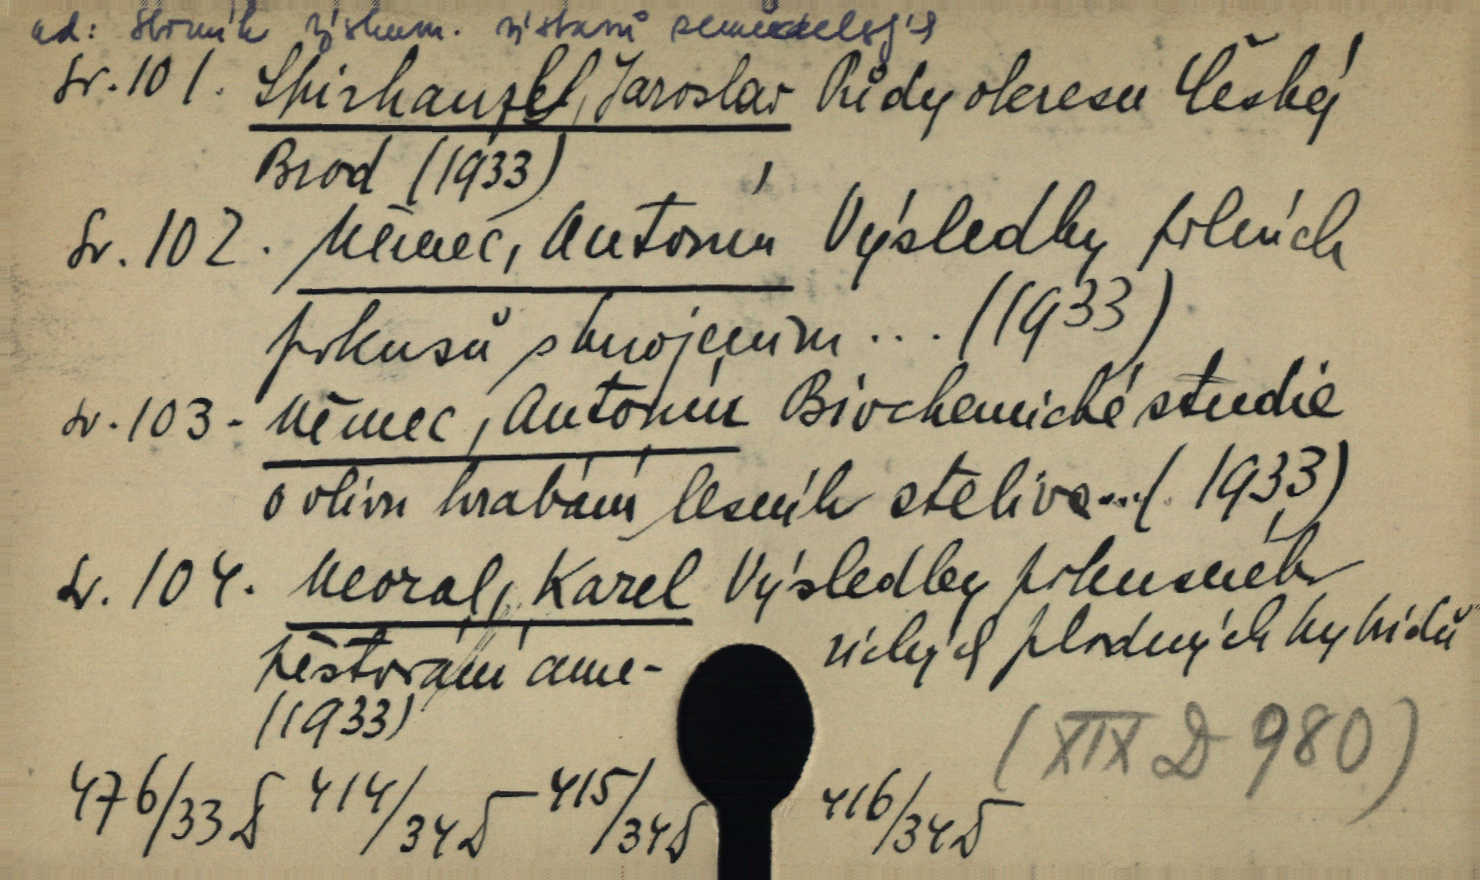 ad: Sborník výzkum. ústavů zemědělských
Sv. 101. Spirhanzl, Jaroslav Půdy okresu Český
Brod (1933)
Sv. 102. Němec, Antonín Výsledky polních
pokusů s hnojením ... (1933)
Sv. 103 - Němec, Antonín Biochemické studie
o vlivu hrabání lesního steliva ... (1933)
Sv. 104. Neoral, Karel Výsledky pokusného
pěstování ame- rických plodných hybridů
(1933)
(XIX D 980)
476/33 D 414/34 D - 415/34 D 416/34 D